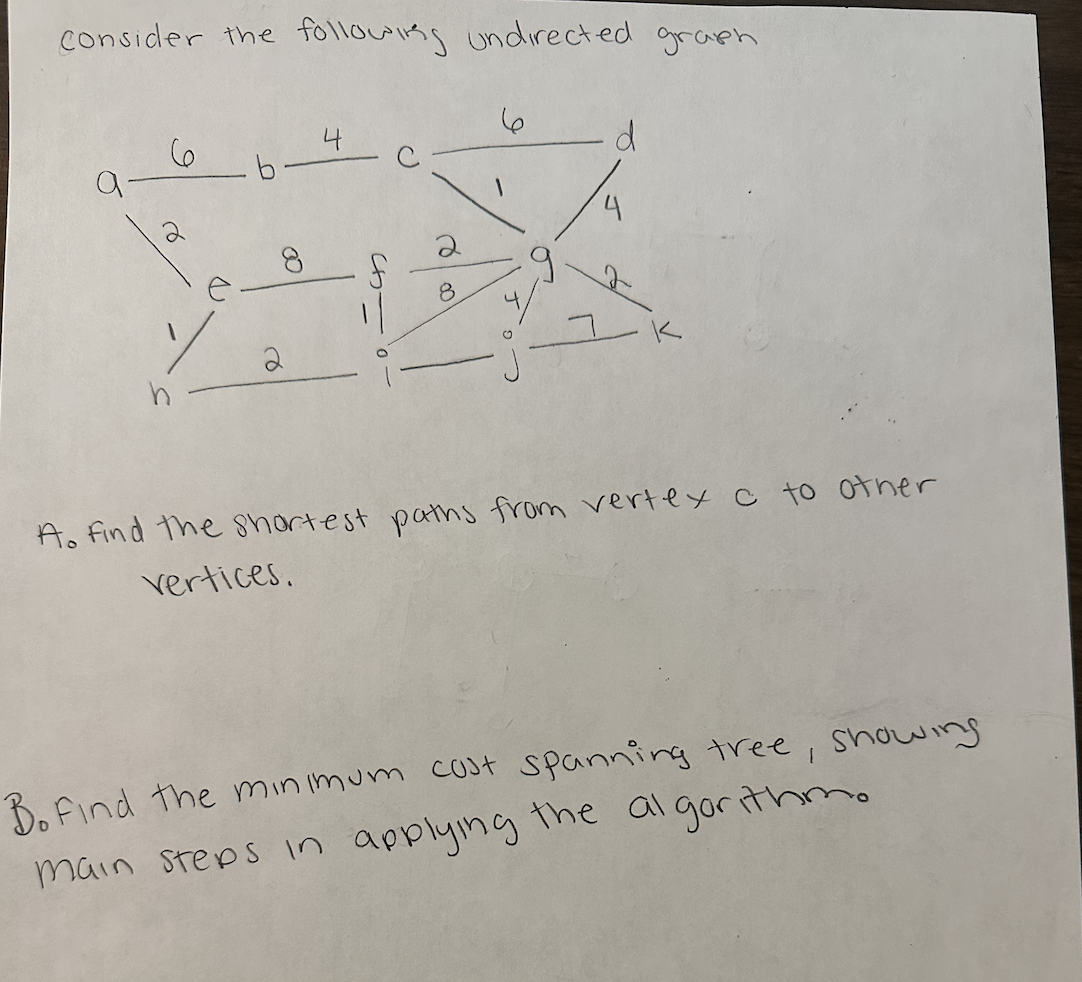 consider the following undirected graph
6 4 6
a b c d
2 1 4
8 2
e f g
1 1 8 4 2
2 7
h i j k
A. Find the shortest paths from vertex c to other
vertices.
B. Find the minimum cost spanning tree, showing
main steps in applying the algorithm.